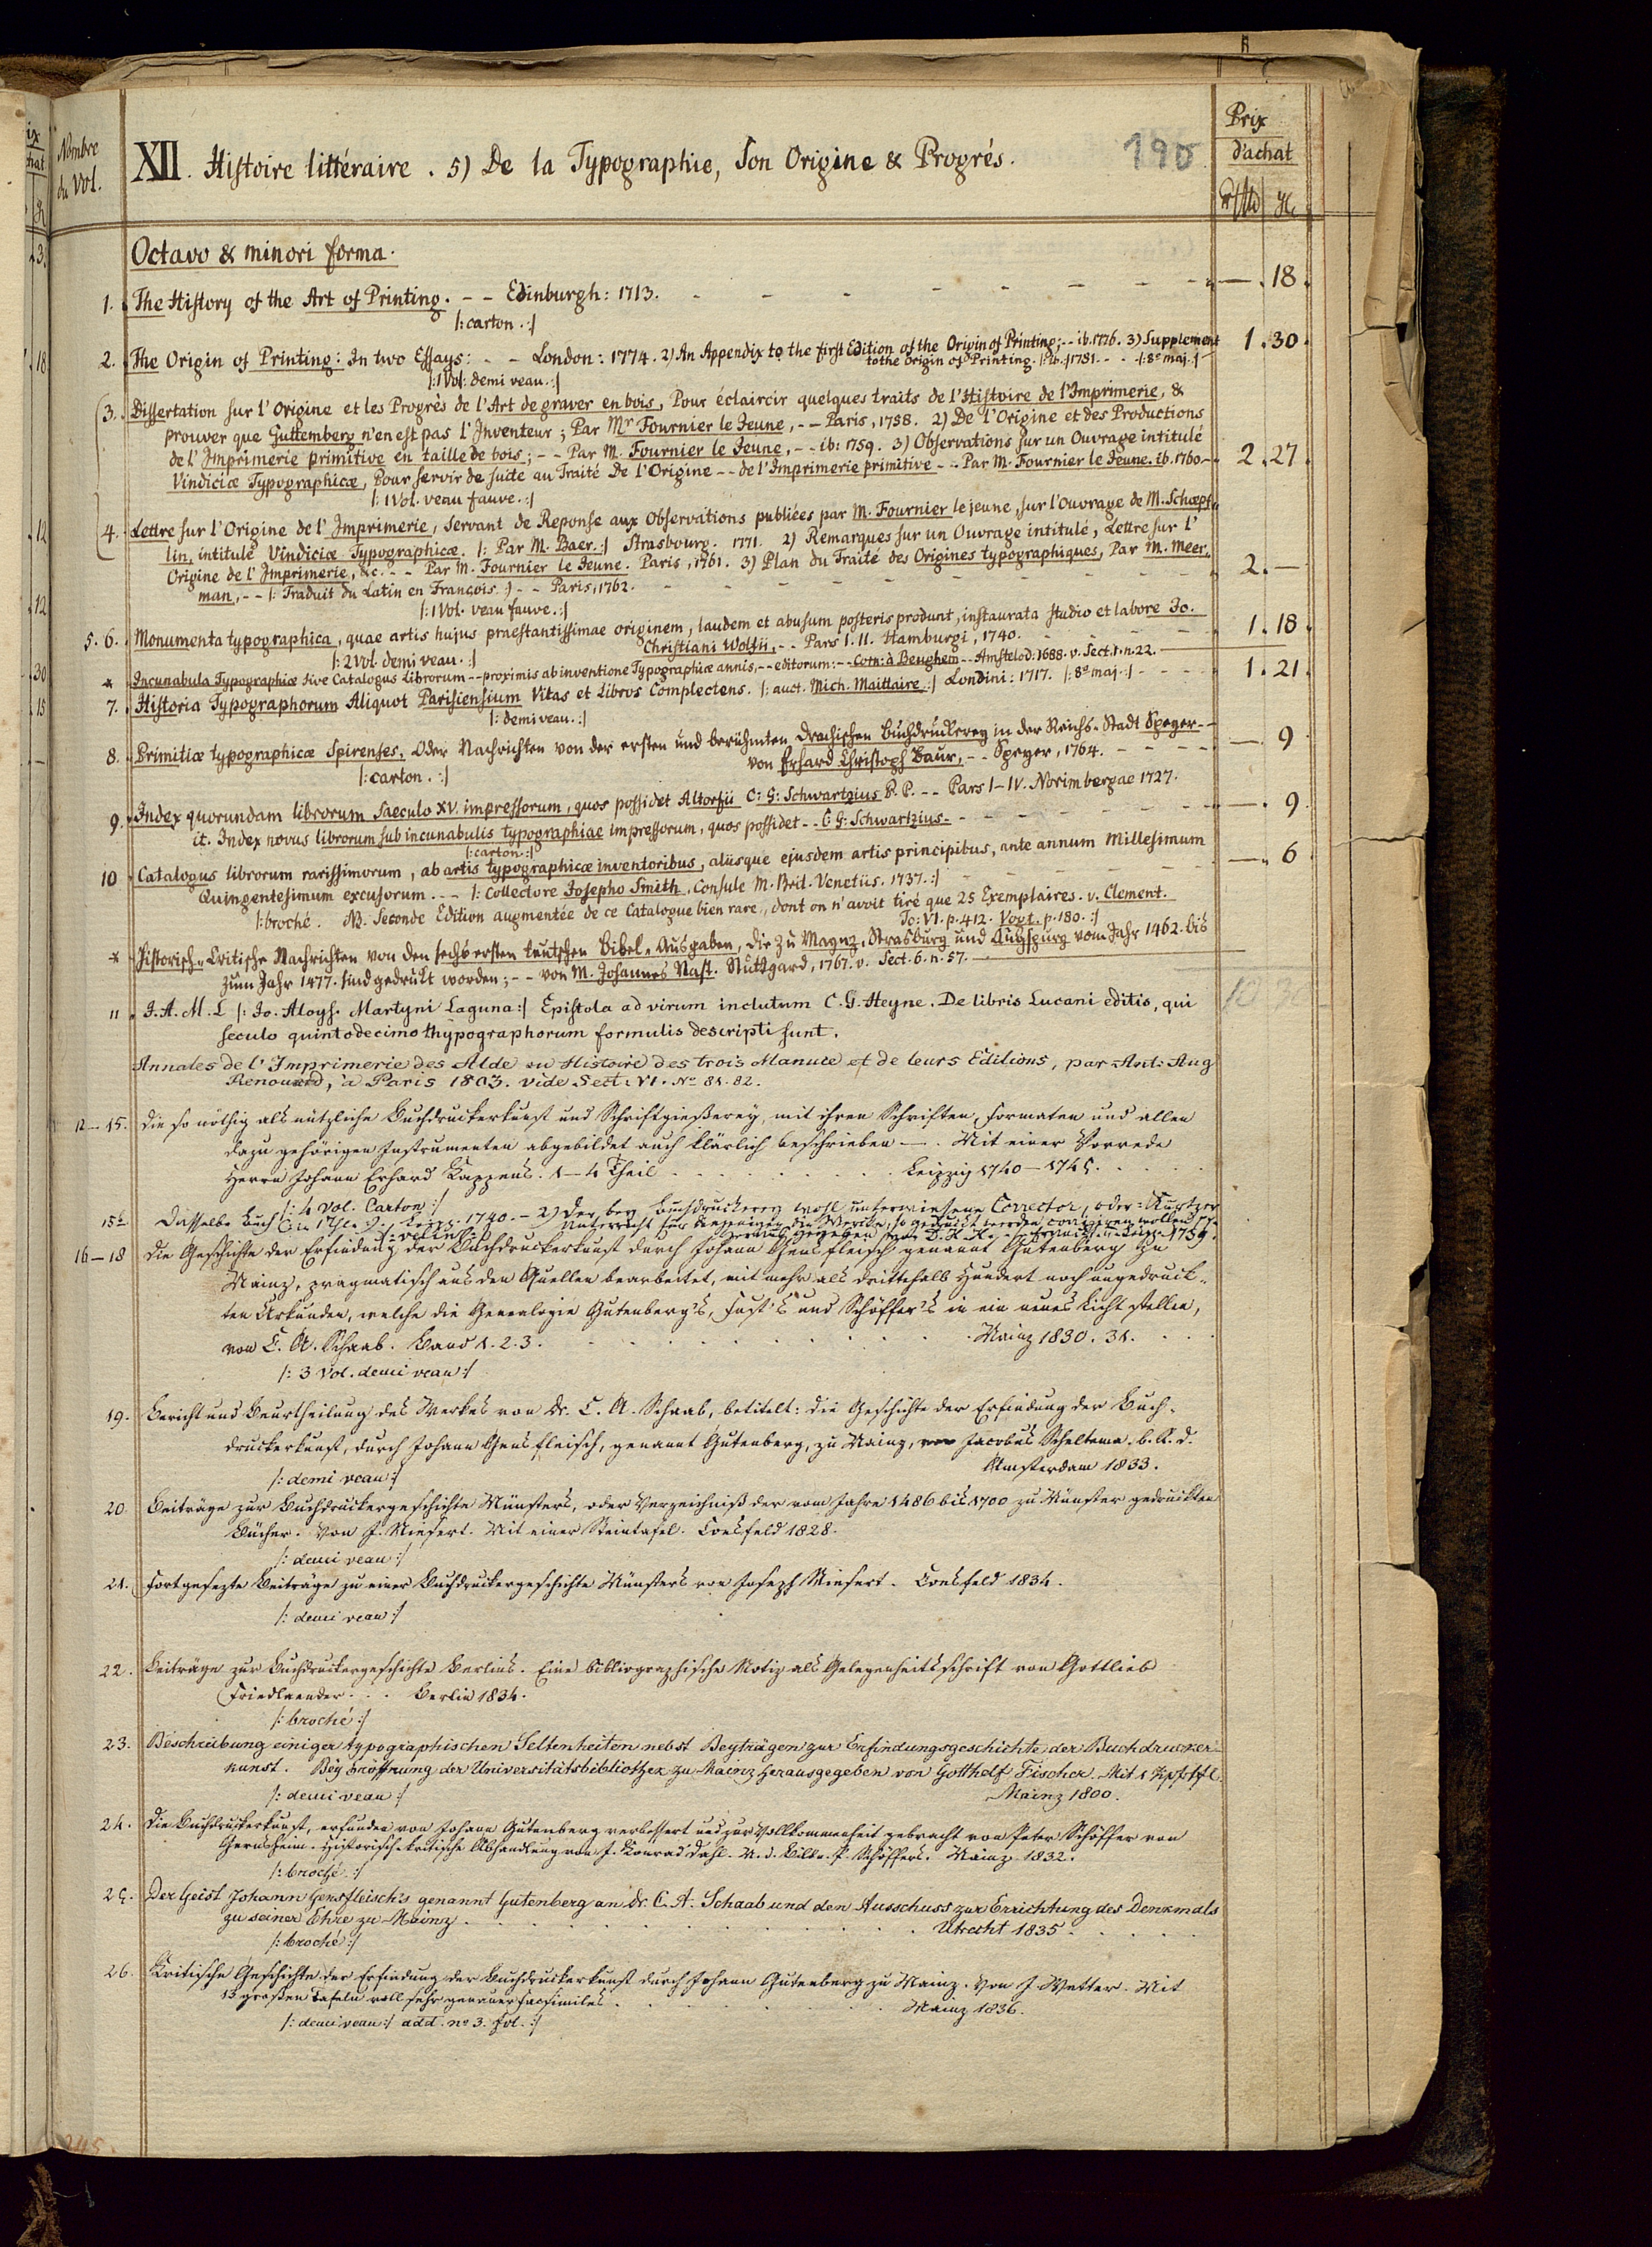 Nombre
du Vol.
XII. Histoire littéraire. 5) De la Typographie, Son Origine & Progrés.
190
Prix
d'achat
Octavo & minori forma.
1. The History of the Art of Printing. - - Edinburgh: 1713. — . 18.
|: carton. :|
2. The Origin of Printing: In two Essays: - - London: 1774. 2) An Appendix to the first Edition of the Origin of Printing; - - ib. 1776. 3) Supplement 1. 30.
to the Origin of Printing. |: ib. 1781. - - |: 8º maj. :|
|: 1 Vol: demi veau. :|
3. Dissertation sur l'Origine et les Progrès de l'Art de graver en bois, Pour éclaircir quelques traits de l'Histoire de l'Imprimerie, &
prouver que Guttemberg n'en est pas l'Inventeur; Par Mr Fournier le Jeune, - - Paris, 1758. 2) De l'Origine et des Productions
de l'Imprimerie primitive en taille de bois; - - Par M. Fournier le Jeune, - - ib: 1759. 3) Observations sur un Ouvrage intitulé
Vindiciæ Typographicæ, Pour servir de suite au Traité De l'Origine - - de l'Imprimerie primitive - - Par M. Fournier le Jeune. ib. 1760. - 2. 27.
|: 1 Vol. veau fauve. :|
4. Lettre sur l'Origine de l'Imprimerie, Servant de Reponse aux Observations publiées par M. Fournier le jeune, sur l'Ouvrage de M. Schœpf-
lin, intitulé Vindiciæ Typographicæ. |: Par M. Baer. :| Strasbourg. 1771. 2) Remarques sur un Ouvrage intitulé, Lettre sur l'
Origine de l'Imprimerie, &c. - - Par M. Fournier le Jeune. Paris, 1761. 3) Plan du Traité des Origines typographiques, Par M. Meer-
man, - - |: Traduit du Latin en François. :| - - Paris, 1762. 2. —
|: 1 Vol. veau fauve. :|
5. 6. Monumenta typographica, quae artis hujus praestantissimae originem, laudem et abusum posteris produnt, instaurata studio et labore Jo.
Christiani Wolfii, - - Pars I. II. Hamburgi, 1740. 1. 18.
|: 2 Vol. demi veau. :|
* Incunabula Typographiæ sive Catalogus Librorum - - proximis ab inventione Typographiæ annis, - - editorum: - - Corn: à Beughem - - Amstelod: 1688. v. Sect. 1. n. 22.
7. Historia Typographorum Aliquot Parisiensium Vitas et Libros Complectens. |: auct. Mich. Maittaire. :| Londini: 1717. |: 8º maj. :| 1. 21.
|: demi veau. :|
8. Primitiæ typographicæ Spirenses, Oder Nachrichten von der ersten und berühmten Drachischen Buchdruckerey in der Reichs-Stadt Speyer - -
von Erhard Christoph Baur, - - Speyer, 1764. — . 9
|: carton. :|
9. Index quorundam librorum saeculo XV. impressorum, quos possidet Altorfii C: G: Schwartzius P. P. - - Pars I-IV. Norimbergae 1727.
it. Index novus librorum sub incunabulis typographiae impressorum, quos possidet - - C: G: Schwartzius. — . 9.
|: carton :|
10 Catalogus librorum rarissimorum, ab artis typographicæ inventoribus, aliisque ejusdem artis principibus, ante annum Millesimum
Quingentesimum excusorum. - - |: Collectore Josepho Smith, Consule M. Brit. Venetiis. 1737. :| — . 6
|: broché. NB. Seconde Edition augmentée de ce Catalogue bien rare, dont on n'avoit tiré que 25 Exemplaires. v. Clement.
To: VI. p. 412. Vogt. p. 180. :|
* Historisch-Critische Nachrichten von den sechs ersten teutschen Bibel-Ausgaben, die zu Maynz, Strasburg und Augspurg vom Jahr 1462. bis
zum Jahr 1477. sind gedrukt worden; - - von M. Johannes Nast. Stuttgard, 1767. v. Sect. 6. n. 57.
10 30
11 J. A. M. L |: Jo. Aloys. Martyni Laguna :| Epistola ad virum inclutum C. G. Heyne. De libris Lucani editis, qui
seculo quintodecimo thypographorum formulis descripti sunt.
Annales de l'Imprimerie des Alde ou Histoire des trois Manuce et de leurs Editions, par Ant: Aug
Renouard, à Paris 1803. vide Sect: VI. No 81. 82.
12-15. Die so nöthig als nützliche Buchdruckerkunst und Schriftgießerey, mit ihren Schriften, Formaten und allen
dazu gehörigen Instrumenten abgebildet auch klärlich beschrieben —. Mit einer Vorrede
Herrn Johann Erhard Kappens. 1-4 Theil Leipzig 1740-1745.
|: 4 Vol. Carton :|
15b Dasselbe Buch Leipz. 1740. - 2) Der bey Buchdruckerey wohl unterwiesene Corrector, oder: Kurtzer
Unterricht für diejenigen die Wercke, so gedruckt werden corrigiren wollen
1739.
16-18 Die Geschichte der Erfindung der Buchdruckerkunst durch Johann Gensfleisch genannt Gutenberg zu
Mainz, pragmatisch aus den Quellen bearbeitet, mit mehr als dritthalb Hundert noch ungedruck-
ten Urkunden, welche die Genealogie Gutenberg's, Fust's und Schöffer's in ein neues Licht stellen,
von C. A. Schaab. Band 1. 2. 3. Mainz 1830. 31.
|: 3 Vol. demi veau :|
19. Bericht und Beurtheilung des Werkes von Dr. C. A. Schaab, betitelt: die Geschichte der Erfindung der Buch-
druckerkunst, durch Johann Gensfleisch, genannt Gutenberg, zu Mainz, von Jacobus Scheltema. b. R. d.
Amsterdam 1833.
|: demi veau :|
20. Beiträge zur Buchdruckergeschichte Münsters, oder Verzeichniß der vom Jahre 1486 bis 1700 zu Münster gedruckten
Bücher. Von J. Niesert. Mit einer Steintafel. Coesfeld 1828.
|: demi veau :|
21. Fortgesezte Beiträge zu einer Buchdruckergeschichte Münsters von Joseph Niesert. Coesfeld 1834.
|: demi veau :|
22. Beiträge zur Buchdruckergeschichte Berlins. Eine bibliographische Notiz als Gelegenheitsschrift von Gottlieb
Friedlaender. . . Berlin 1834.
|: broché :|
23. Beschreibung einiger typographischen Seltenheiten nebst Beyträgen zur Erfindungsgeschichte der Buchdrucker-
kunst. Bey Eröffnung der Universitätsbibliothek zu Mainz herausgegeben von Gotthelf Fischer. Mit 1 Kpfrtfl.
Mainz 1800.
|: demi veau :|
24. Die Buchdruckerkunst, erfunden von Johann Gutenberg verbessert und zur Vollkommenheit gebracht von Peter Schöffer von
Gernsheim. Historisch-kritische Abhandlung von J. Konrad Dahl. M. d. Bilde P. Schöffers. Mainz 1832.
|: broché :|
25. Der Geist Johann Gensfleisch's genannt Gutenberg an Dr. C. A. Schaab und den Ausschuss zur Errichtung des Denkmals
zu seiner Ehre zu Mainz. Utrecht 1835.
|: broché :|
26. Kritische Geschichte der Erfindung der Buchdruckerkunst durch Johann Gutenberg zu Mainz. Von J. Wetter. Mit
13 großen Tafeln voll sehr genauer Facsimiles. Mainz 1836.
|: demi veau :| add. no 3. fol. :|